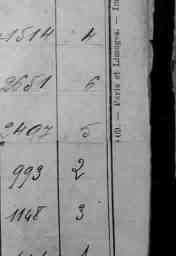 1514 4
2651 6
2407 5
993 2
1148 3
— Paris et Limoges. —